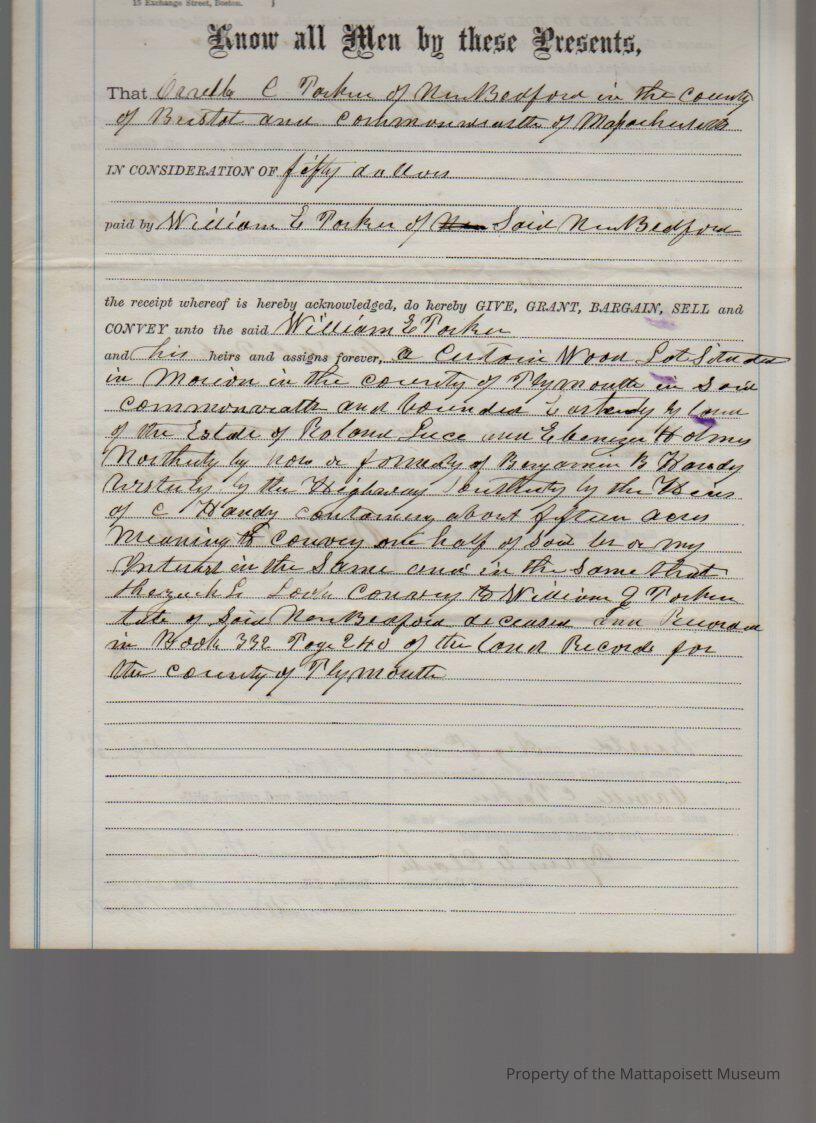 15 Exchange Street, Boston.
Know all Men by these Presents,
That C Parker of New Bedford in the County
of Bristol and Commonwealth of Massachusetts
IN CONSIDERATION OF fifty dollars
paid by William E Parker of Said New Bedford
the receipt whereof is hereby acknowledged, do hereby GIVE, GRANT, BARGAIN, SELL and
CONVEY unto the said William E Parker
and his heirs and assigns forever, a Certain Wood Lot Situated
in Marion in the county of Plymouth in Said
Commonwealth and bounded Easterly by land
of the Estate of Roland Luce and Ebenezer Holmes
Northerly by now or formerly of Benjamin B Handy
Westerly by the Highway Southerly by the Heirs
of C Handy containing about fifteen acres
Meaning to convey one half of Said lot or my
Interest in the Same and in the Same that
Look Convey to William J Parker
late of Said New Bedford deceased and Recorded
in Book 332 Page 240 of the land Records for
the county of Plymouth
Property of the Mattapoisett Museum